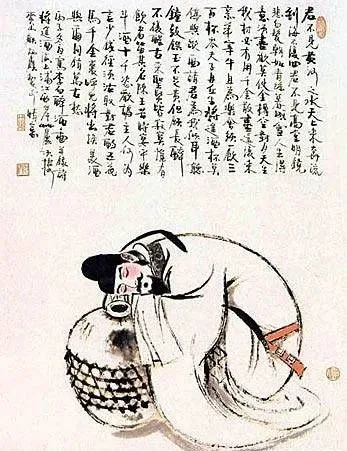 君不見黃河之水天上來奔流
到海不復回君不見高堂明鏡
悲白髮朝如青絲暮成雪人生得
意須盡歡莫使金樽空對月天生
我材必有用千金散盡還復來
烹羊宰牛且為樂會須一飲三
百杯岑夫子丹丘生將進酒杯莫
停與君歌一曲請君為我側耳聽
鐘鼓饌玉不足貴但願長醉
不復醒古來聖賢皆寂寞惟有
飲者留其名陳王昔時宴平樂
斗酒十千恣歡謔主人何為
言少錢徑須沽取對君酌五花
馬千金裘呼兒將出換美酒
與爾同銷萬古愁
李白醉酒圖
將進酒